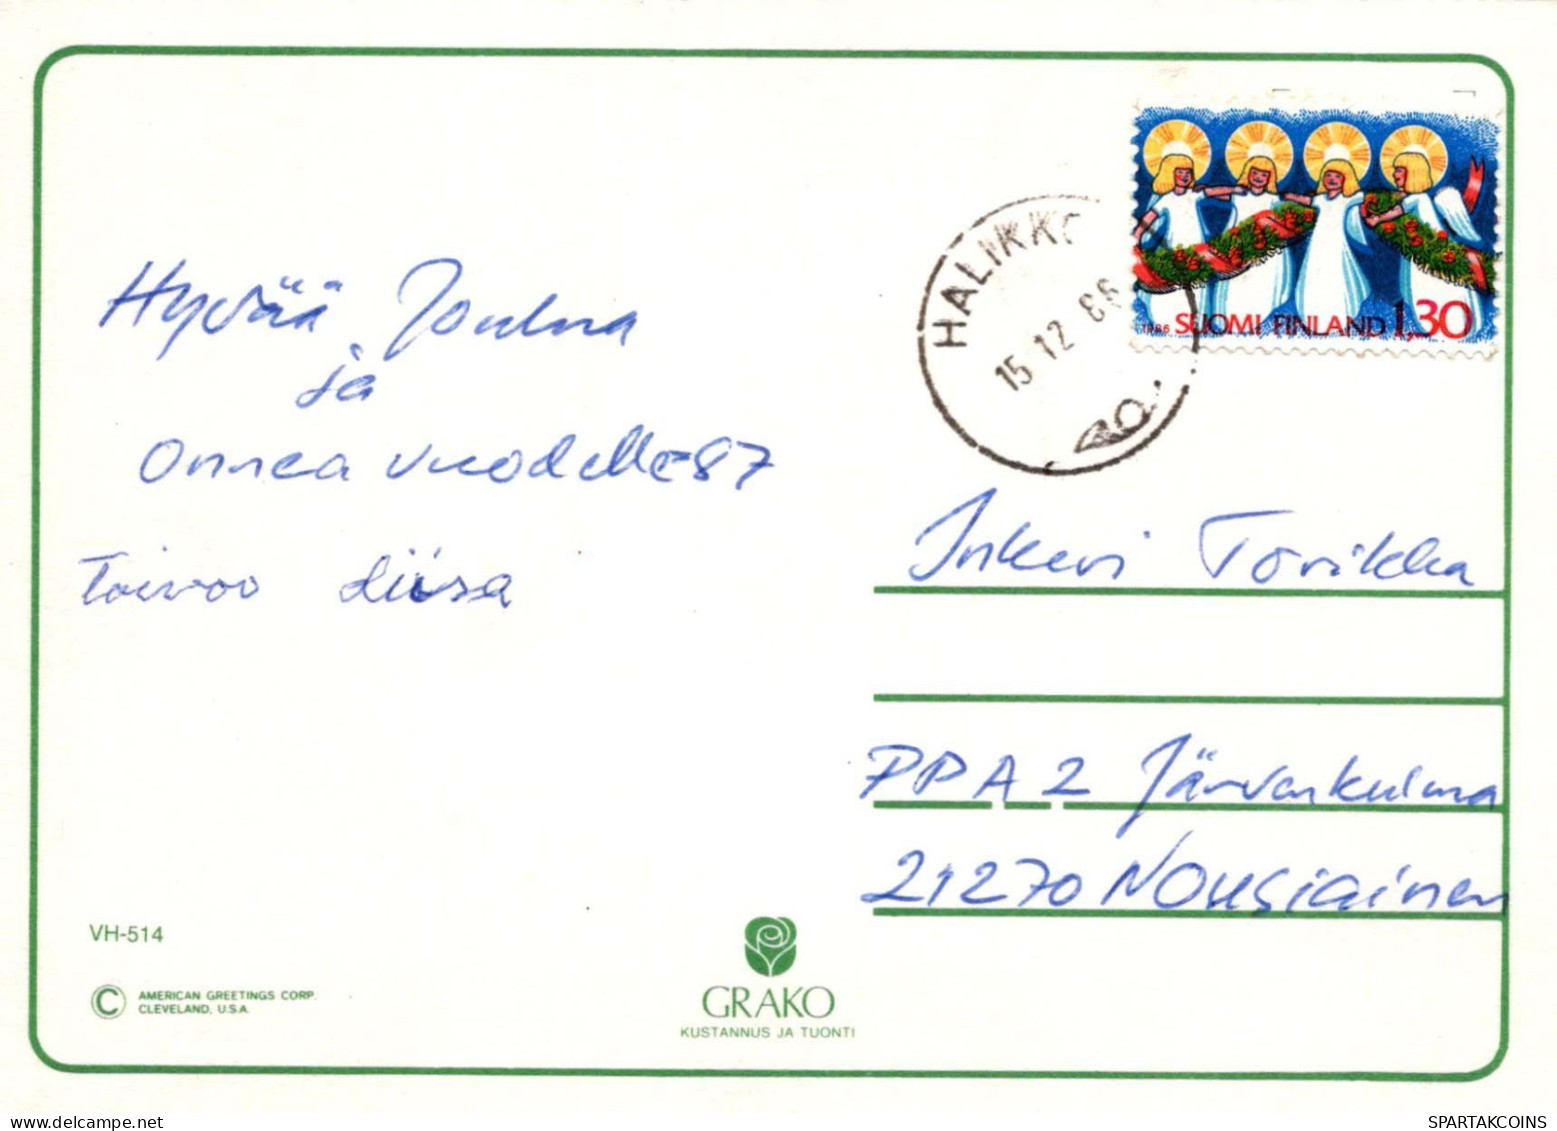 HALIKKO
15.12.86
1986 SUOMI FINLAND 1,30
Hyvää Joulua
ja
Onnea vuodelle 87
Toivoo Liisa
Inkeri Torikka
PP A 2 Järvenkulma
21270 Nousiainen
VH-514
© AMERICAN GREETINGS CORP.
CLEVELAND, U.S.A.
GRAKO
KUSTANNUS JA TUONTI
SPARTAKCOINS